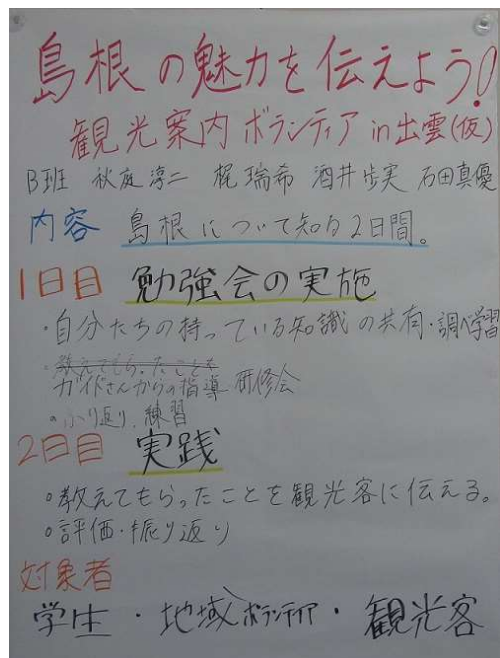 島根の魅力を伝えよう!
観光案内ボランティア in 出雲(仮)
B班 秋庭淳二 梶瑞希 酒井歩実 石田真優
内容 島根について知る2日間。
1日目 勉強会の実施
・自分たちの持っている知識の共有・調べ学習
・教えてもらったことを
ガイドさんからの指導 研修会
・ふり返り、練習
2日目 実践
○教えてもらったことを観光客に伝える。
○評価・振り返り
対象者
学生・地域ボランティア・観光客